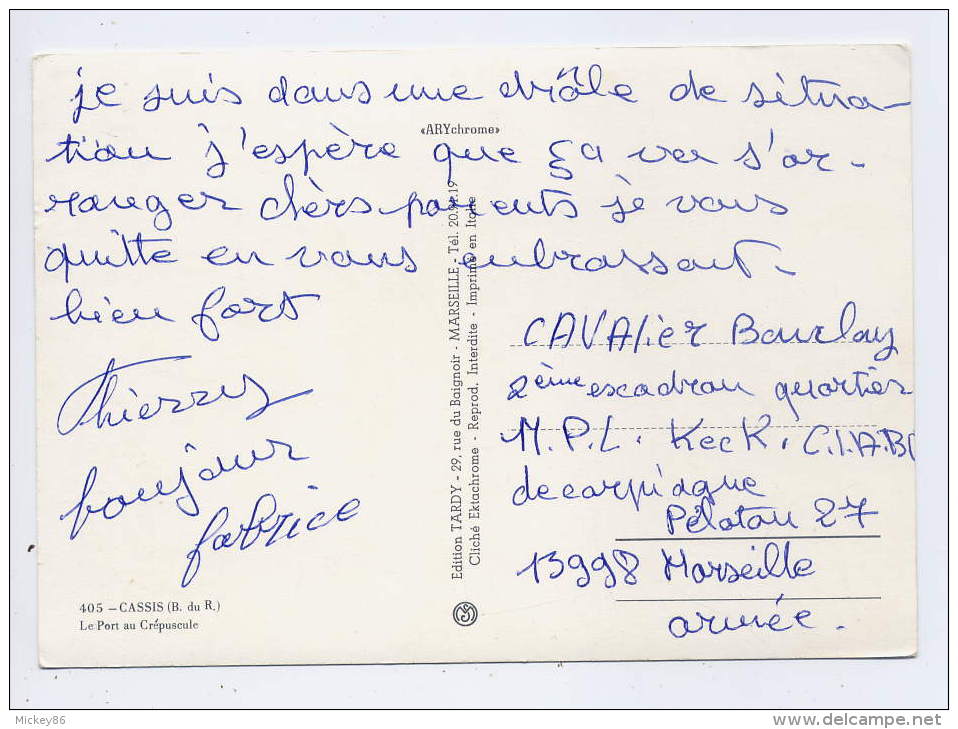 je suis dans une drôle de situa-
tion j'espère que ça va s'ar-
ranger chers parents je vous
quitte en vous embrassant.
bien fort
Thierry
bonjour
fabrice
«ARYchrome»
Edition TARDY - 29, rue du Baignoir - MARSEILLE - Tél. 20.94.19
Cliché Ektachrome - Reprod. Interdite - Imprimé en Italie
CAVAlier Bourlay
2ème escadron quartier
M.P.L. KecK. C.I.A.B
de carpiagne
Péloton 27
13998 Marseille
armée.
405 – CASSIS (B. du R.)
Le Port au Crépuscule
Mickey86
http://www.delcampe.net